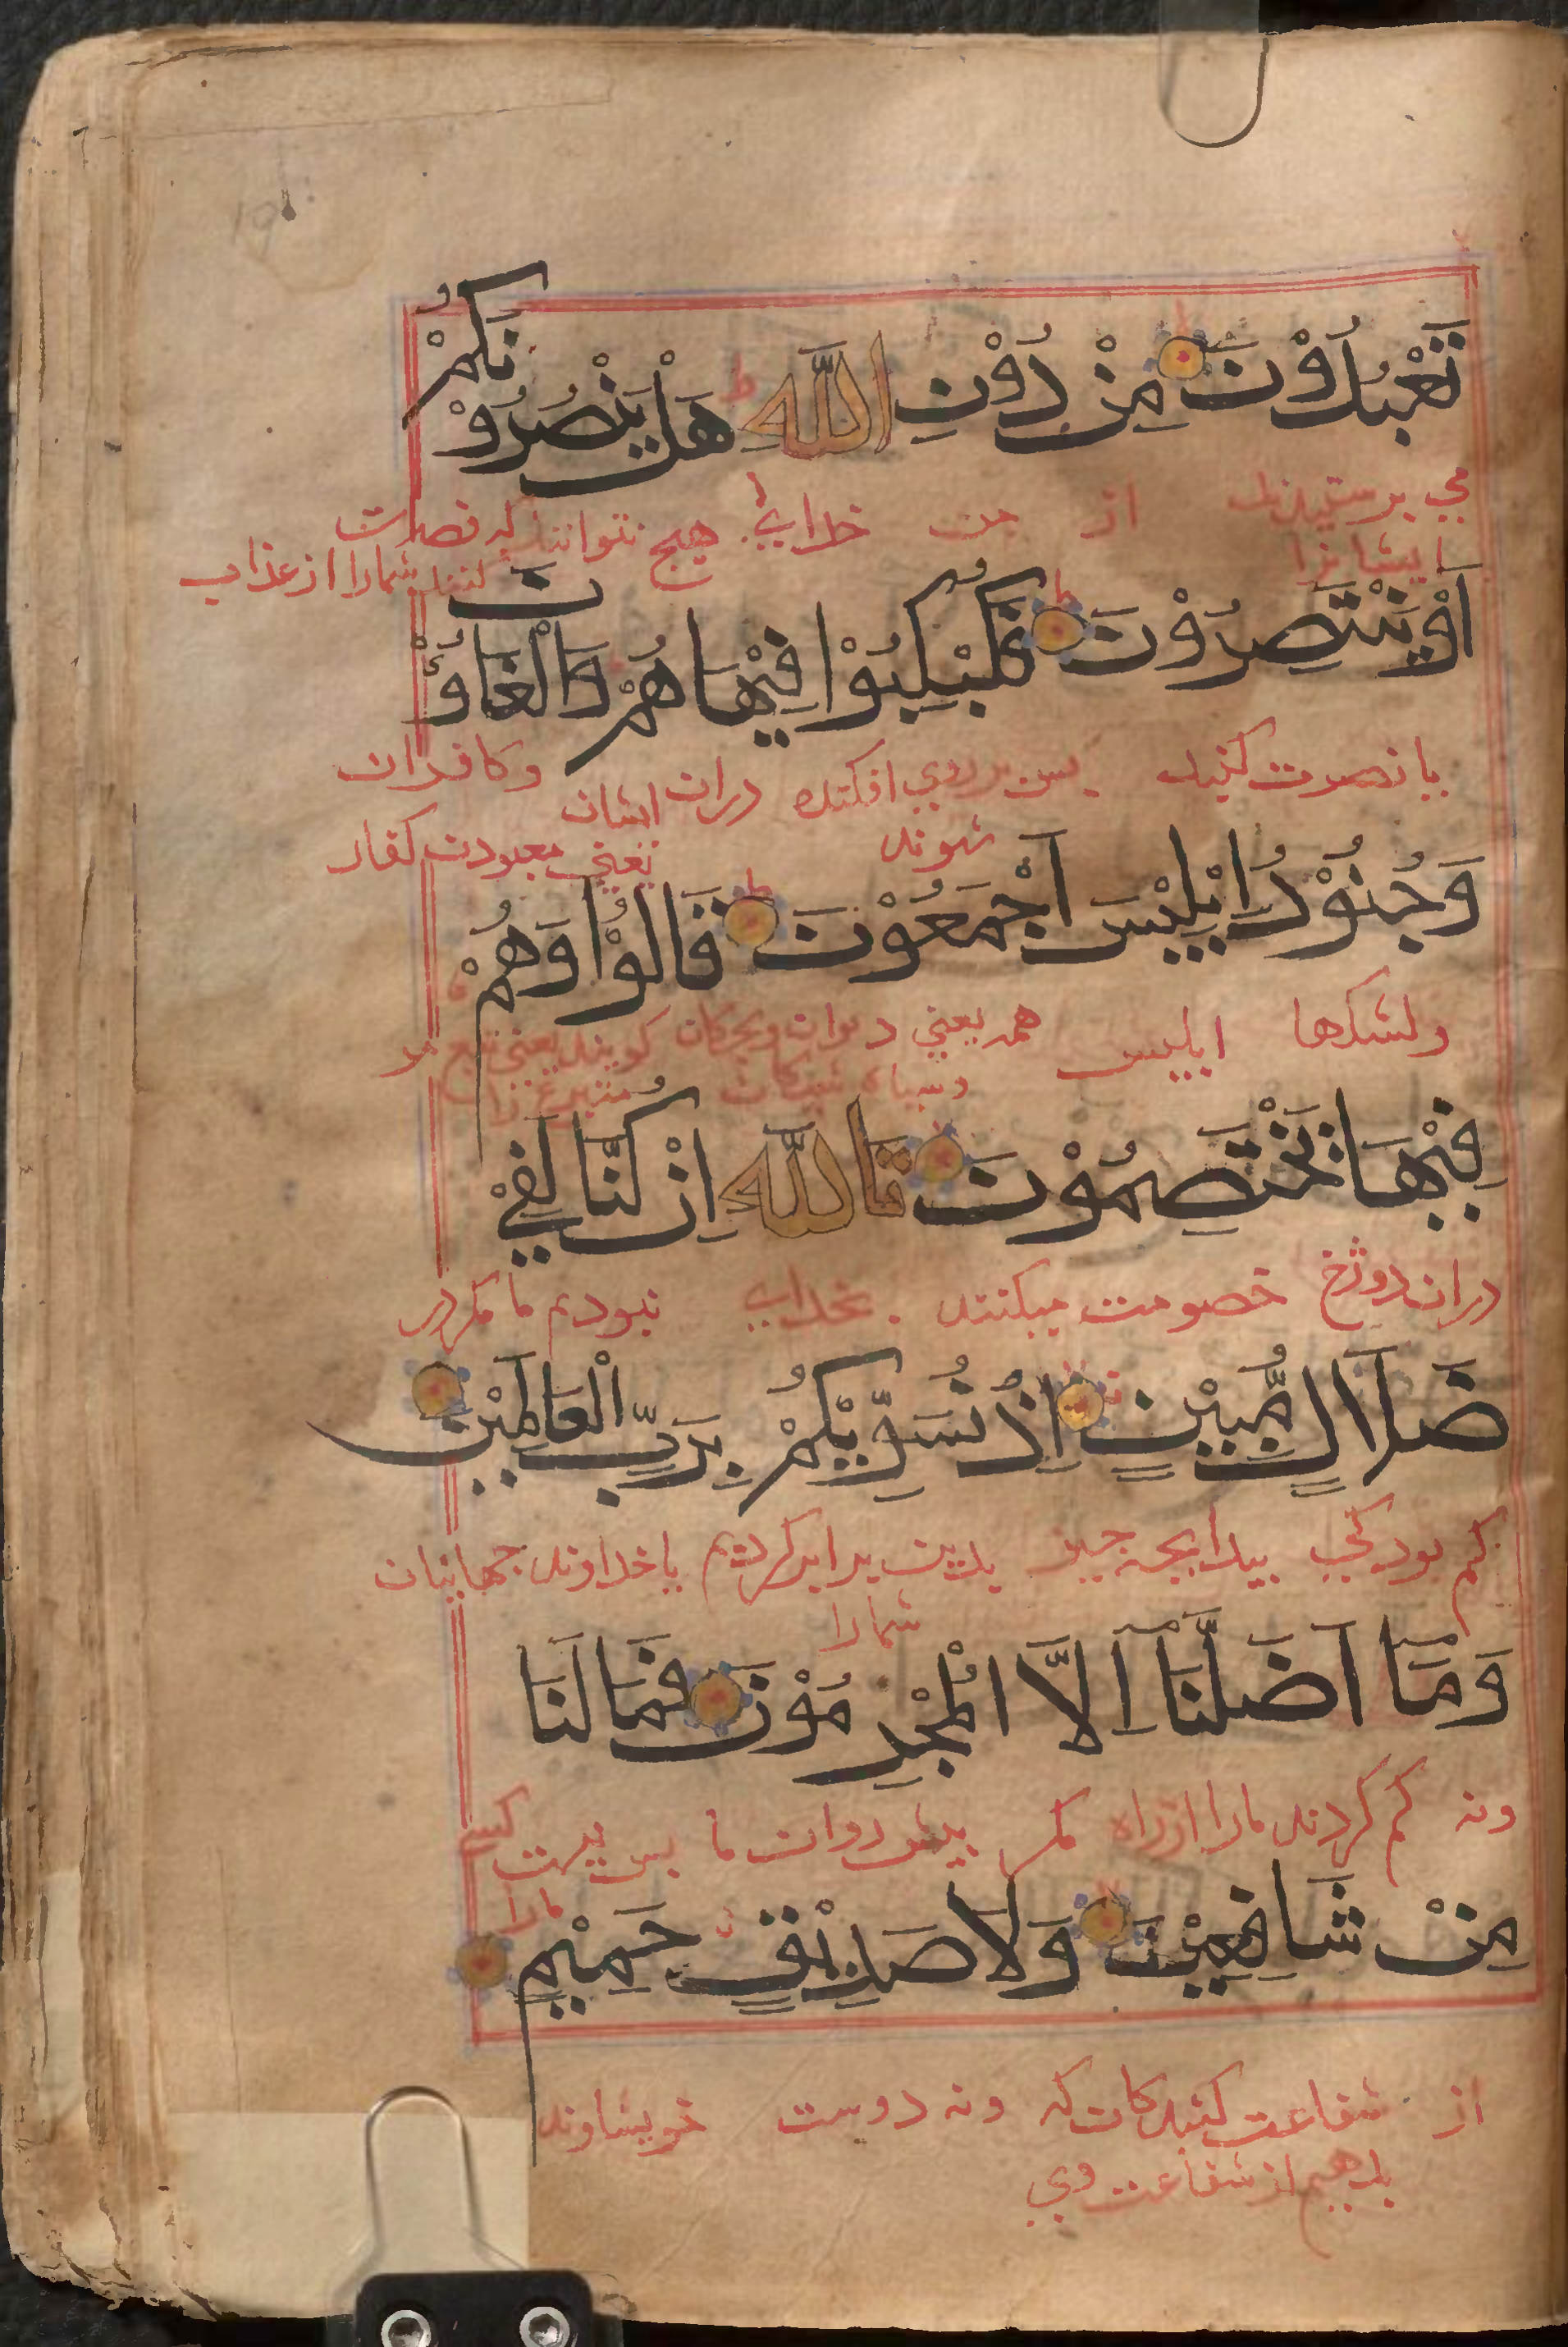 تَعْبُدُوْنَ مِنْ دُوْنِ اللّٰهِ هَلْ يَنْصُرُوْنَكُمْ
مي پرستيدند از خداي هيچ نتوانند كه نصرت
ايشانرا كنند شمارا از عذاب
اَوْ يَنْتَصِرُوْنَ فَكُبْكِبُوْا فِيْهَا هُمْ وَالْغَاوٗنَ
يا نصرت كنند پس بر روي افكنده دران ايشان وكافران
شوند يعني معبودن كفار
وَجُنُوْدُ اِبْلِيْسَ اَجْمَعُوْنَ قَالُوْا وَهُمْ
ولشكرها ابليس همه يعني ديوان وبچكان كويند يعني
فِيْهَا يَخْتَصِمُوْنَ تَاللّٰهِ اِنْ كُنَّا لَفِيْ
دران دوزخ خصومت ميكنند بخداي نبوديم ما مكر در
ضَلَالٍ مُّبِيْنٍ اِذْ نُسَوِّيْكُمْ بِرَبِّ الْعَالَمِيْنَ
كم بودكي پيدا بجه چيز بدين برابر كرديم با خداوند جهانيان
شمارا
وَمَآ اَضَلَّنَآ اِلَّا الْمُجْرِمُوْنَ فَمَا لَنَا
ونه كم كردند مارا از راه مكر پيش روان ما پس نيست كسي
مارا
مِنْ شَافِعِيْنَ وَلَا صَدِيْقٍ حَمِيْمٍ
از شفاعت كنندكان كه ونه دوست خويشاوند
بدهيم از شفاعت وي